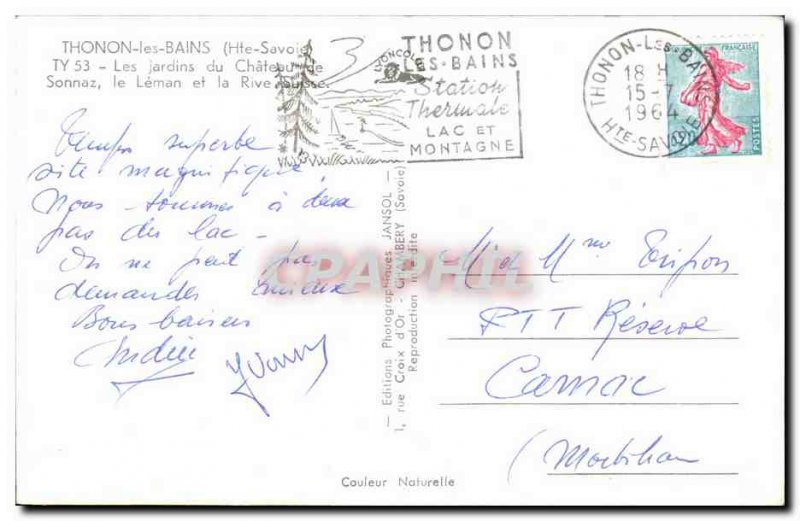 THONON-les-BAINS (Hte-Savoie)
TY 53 - Les jardins du Château de
Sonnaz, le Léman et la Rive Suisse.
THONON
LES-BAINS
Station
Thermale
LAC ET
MONTAGNE
THONON-LES-BAINS
18 H
15-7
1964
HTE-SAVOIE
FRANÇAISE
POSTES
Temps superbe
site magnifique
Nous sommes à deux
pas du lac -
On ne peut pas
demander mieux
Bons baisers
Yvonne
- Editions Photographiques JANSOL -
1, rue Croix d'Or - CHAMBERY (Savoie)
Reproduction interdite
CPAPHIL
M et Mme
PTT Réserve
Carnac
(Morbihan
Couleur Naturelle